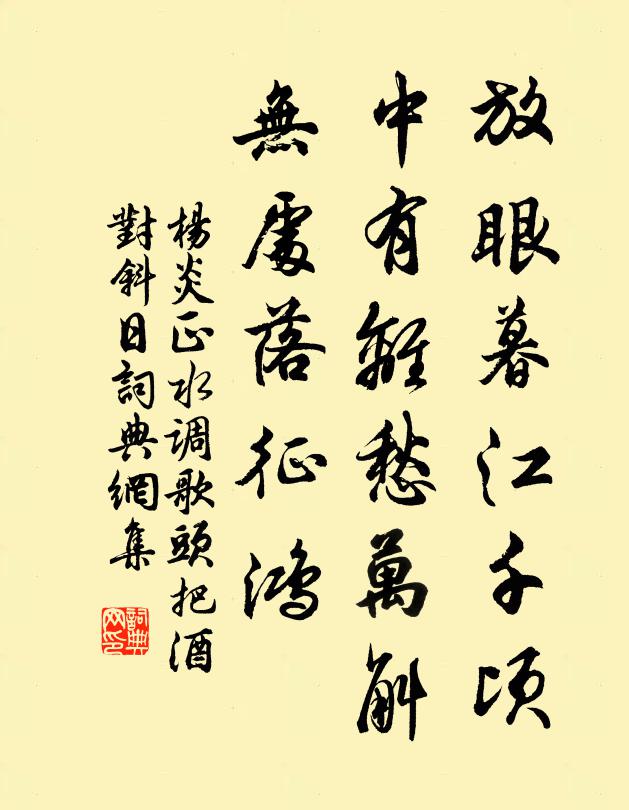 放眼暮江千頃
中有離愁萬斛
無處落征鴻
楊炎正水调歌頭把酒
對斜日詞典網集
詞典网印